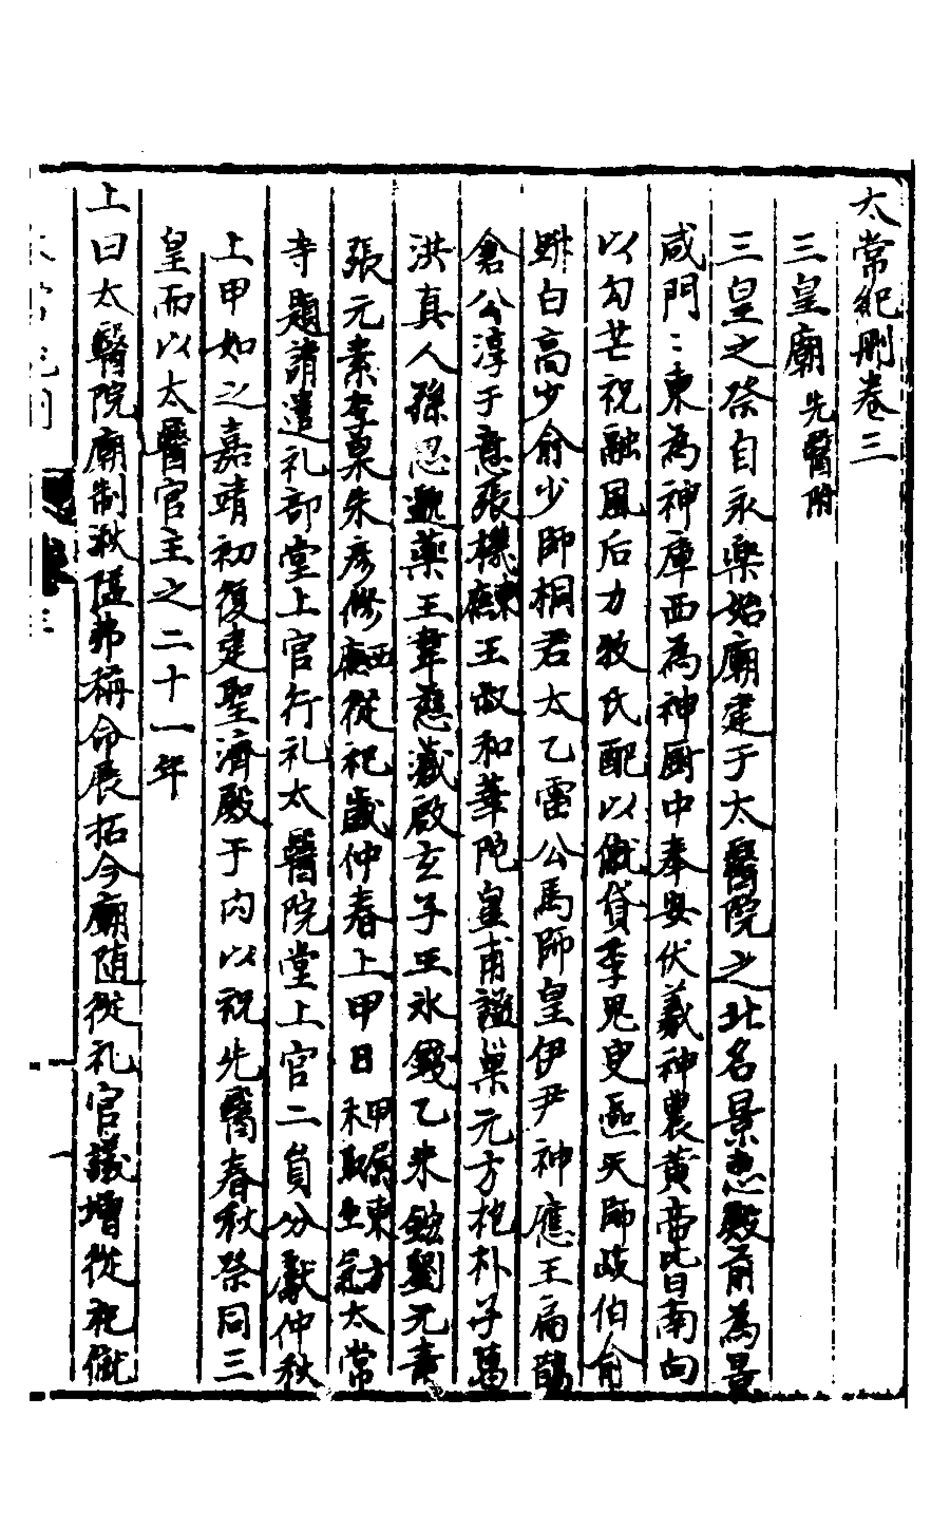 太常紀刪卷三
三皇廟先醫附
三皇之祭自永樂始廟建于太醫院之北名景惠殿前為景
咸門門東為神庫西為神厨中奉安伏羲神農黄帝皆南向
以勾芒祝融風后力牧氏配以僦貸季鬼臾區天師歧伯俞
跗白高少俞少師桐君太乙雷公馬師皇伊尹神應王扁鵲
倉公淳于意張機廡東王叔和華陀皇甫謐巢元方枹朴子葛
洪真人孫思邈藥王韋慈藏啟玄子王氷錢乙朱䏿劉元素
張元素李杲朱彦修廡西從祀歲仲春上甲日甲属東方木取生氣太常
寺題請遣礼部堂上官行礼太醫院堂上官二負分獻仲秋
上甲如之嘉靖初復建聖濟殿于内以祝先醫春秋祭同三
皇而以太醫官主之二十一年
上曰太醫院廟制湫隘弗稱命展拓今廟随從礼官議增從祀僦